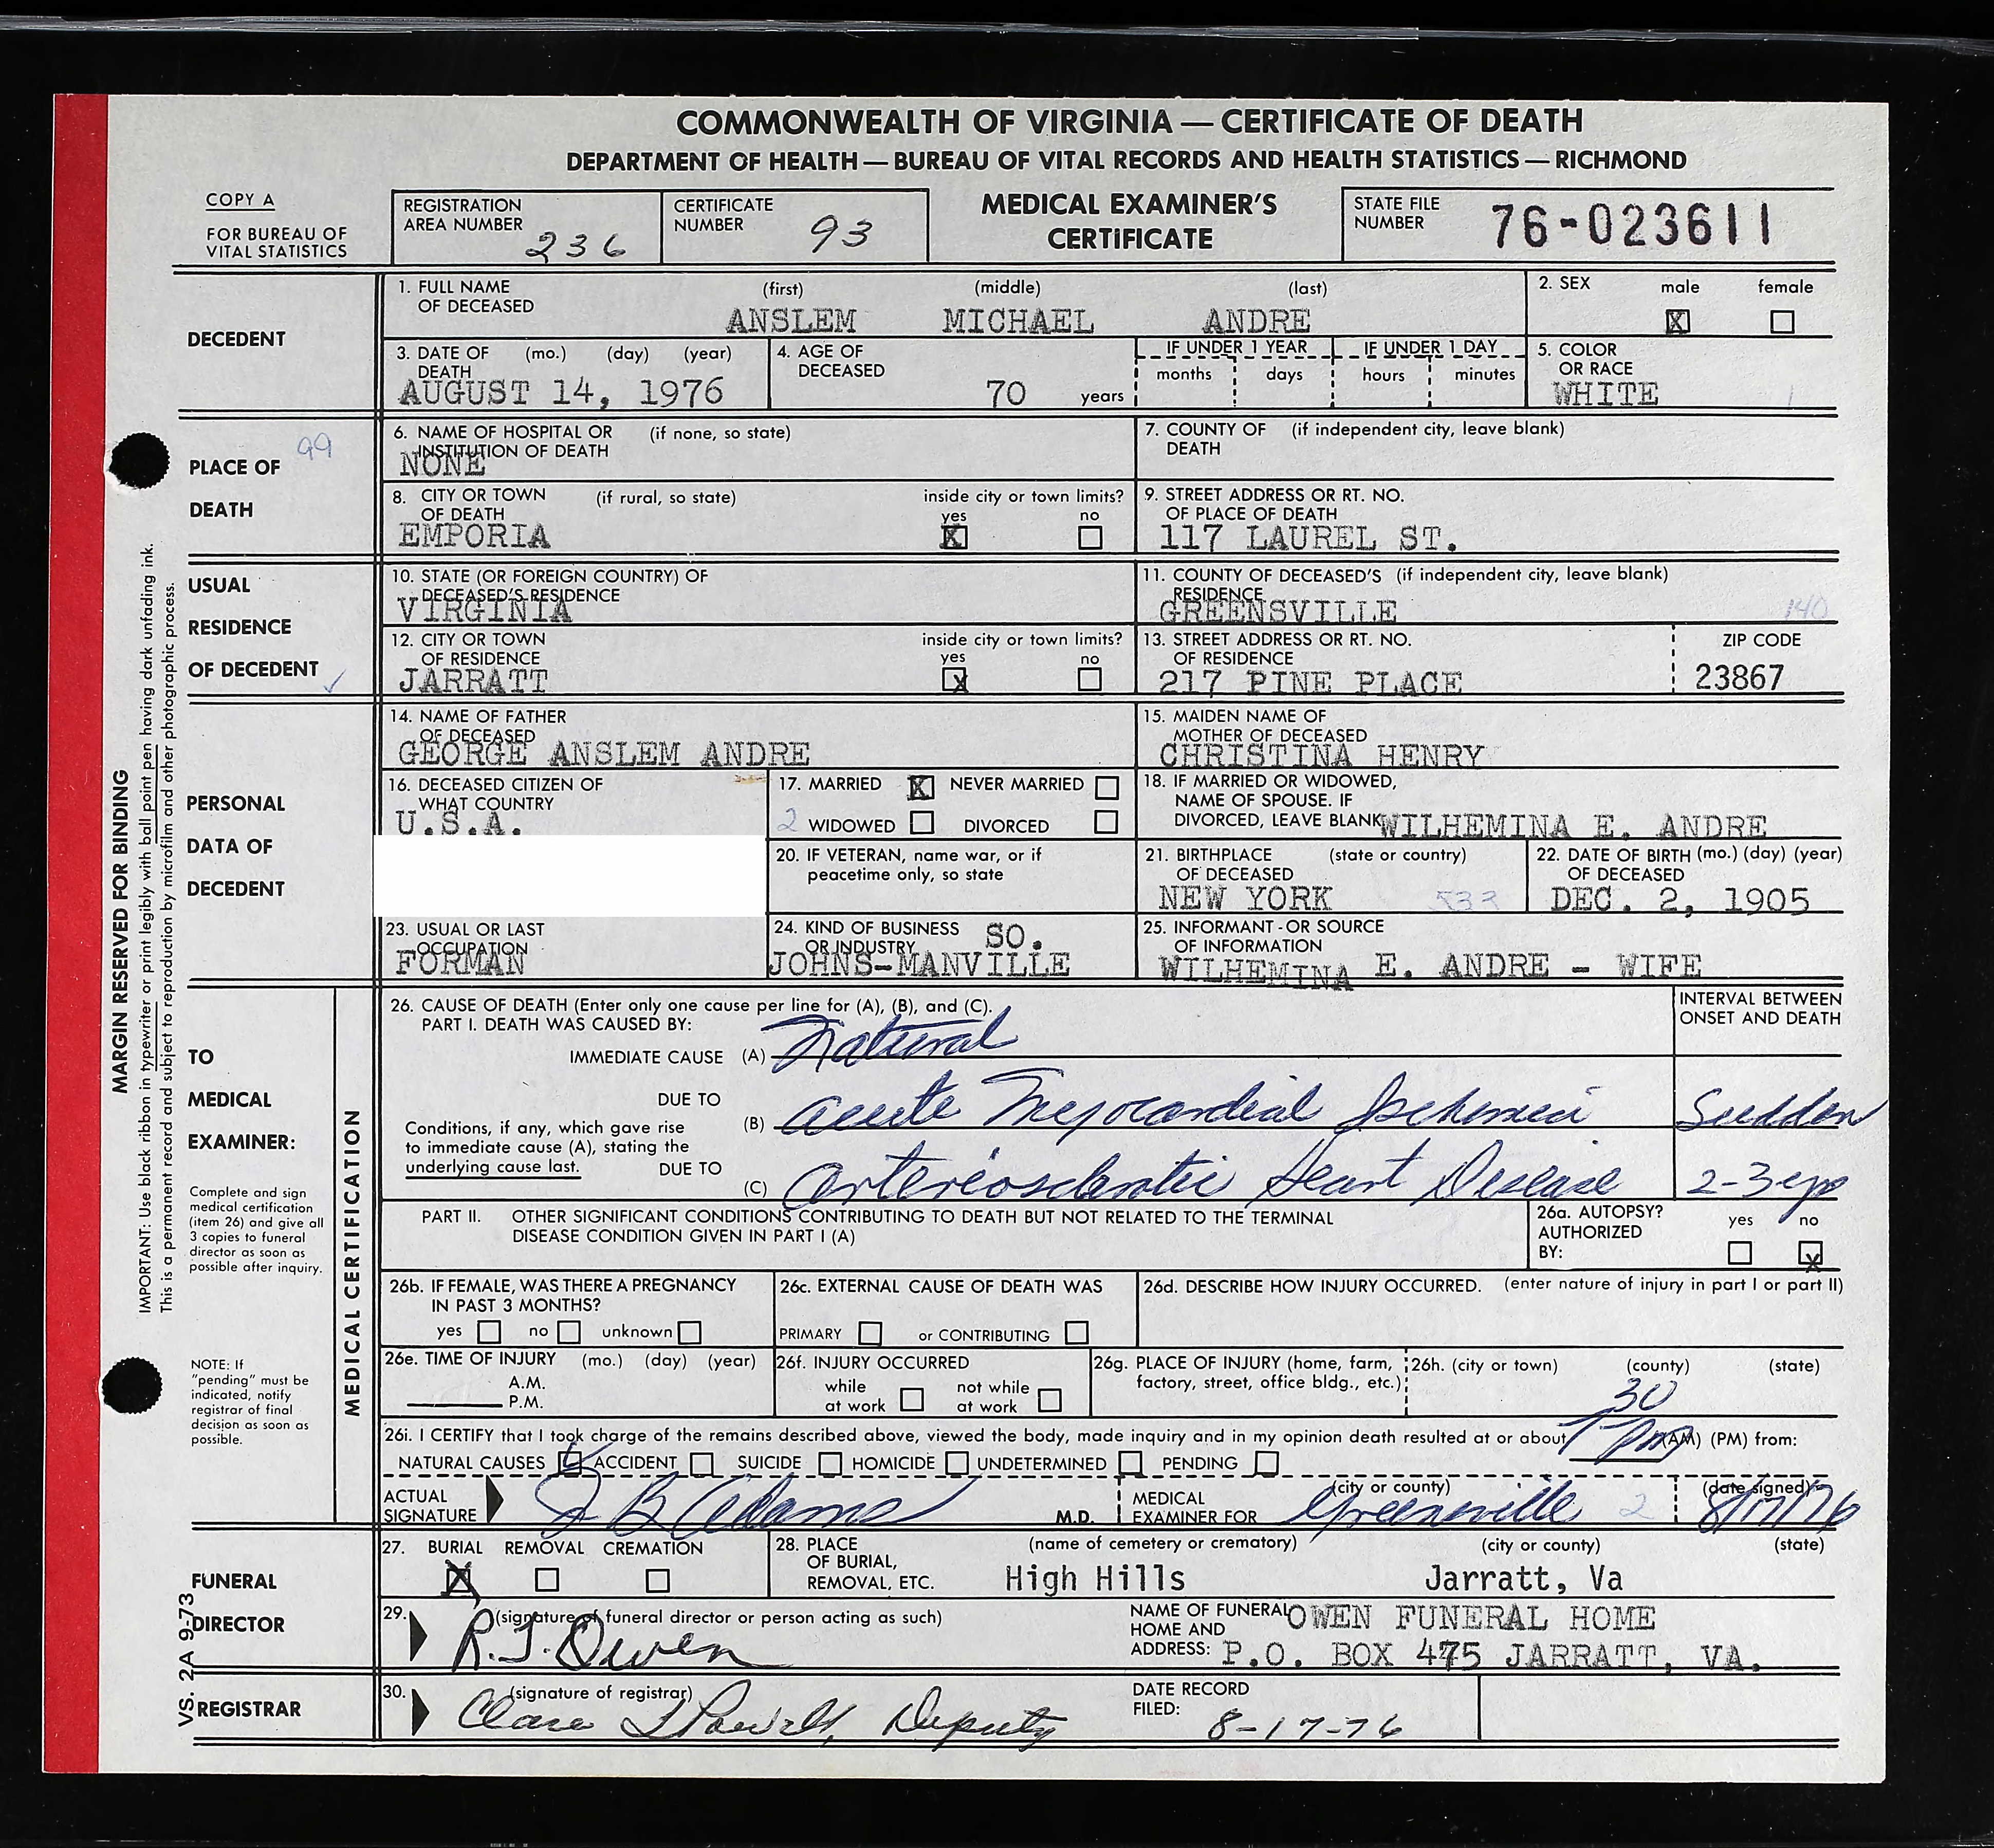 COMMONWEALTH OF VIRGINIA — CERTIFICATE OF DEATH
DEPARTMENT OF HEALTH — BUREAU OF VITAL RECORDS AND HEALTH STATISTICS — RICHMOND
COPY A
FOR BUREAU OF
VITAL STATISTICS
REGISTRATION
AREA NUMBER 236
CERTIFICATE
NUMBER 93
MEDICAL EXAMINER'S
CERTIFICATE
STATE FILE
NUMBER 76-023611
DECEDENT
1. FULL NAME (first) (middle) (last)
OF DECEASED
ANSLEM MICHAEL ANDRE
2. SEX male female
X
3. DATE OF (mo.) (day) (year)
DEATH
AUGUST 14, 1976
4. AGE OF
DECEASED
70 years
IF UNDER 1 YEAR IF UNDER 1 DAY
months days hours minutes
5. COLOR
OR RACE
WHITE
PLACE OF
DEATH
99
6. NAME OF HOSPITAL OR (if none, so state)
INSTITUTION OF DEATH
NONE
7. COUNTY OF (if independent city, leave blank)
DEATH
8. CITY OR TOWN (if rural, so state) inside city or town limits?
OF DEATH yes no
EMPORIA X
9. STREET ADDRESS OR RT. NO.
OF PLACE OF DEATH
117 LAUREL ST.
USUAL
RESIDENCE
OF DECEDENT ✓
10. STATE (OR FOREIGN COUNTRY) OF
DECEASED'S RESIDENCE
VIRGINIA
11. COUNTY OF DECEASED'S (if independent city, leave blank)
RESIDENCE
GREENSVILLE 140
12. CITY OR TOWN inside city or town limits?
OF RESIDENCE yes no
JARRATT X
13. STREET ADDRESS OR RT. NO. ZIP CODE
OF RESIDENCE
217 PINE PLACE 23867
PERSONAL
DATA OF
DECEDENT
14. NAME OF FATHER
OF DECEASED
GEORGE ANSLEM ANDRE
15. MAIDEN NAME OF
MOTHER OF DECEASED
CHRISTINA HENRY
16. DECEASED CITIZEN OF
WHAT COUNTRY
U.S.A.
17. MARRIED X NEVER MARRIED
2 WIDOWED DIVORCED
18. IF MARRIED OR WIDOWED,
NAME OF SPOUSE. IF
DIVORCED, LEAVE BLANK WILHEMINA E. ANDRE
20. IF VETERAN, name war, or if
peacetime only, so state
21. BIRTHPLACE (state or country)
OF DECEASED
NEW YORK
22. DATE OF BIRTH (mo.) (day) (year)
OF DECEASED
DEC. 2, 1905
23. USUAL OR LAST
OCCUPATION
FORMAN
24. KIND OF BUSINESS SO.
OR INDUSTRY
JOHNS-MANVILLE
25. INFORMANT - OR SOURCE
OF INFORMATION
WILHEMINA E. ANDRE - WIFE
MARGIN RESERVED FOR BINDING
IMPORTANT: Use black ribbon in typewriter or print legibly with ball point pen having dark unfading ink.
This is a permanent record and subject to reproduction by microfilm and other photographic process.
TO
MEDICAL
EXAMINER:
Complete and sign
medical certification
(item 26) and give all
3 copies to funeral
director as soon as
possible after inquiry.
NOTE: If
"pending" must be
indicated, notify
registrar of final
decision as soon as
possible.
MEDICAL CERTIFICATION
26. CAUSE OF DEATH (Enter only one cause per line for (A), (B), and (C). INTERVAL BETWEEN
PART I. DEATH WAS CAUSED BY: ONSET AND DEATH
IMMEDIATE CAUSE (A) Natural
DUE TO
(B) Acute Myocardial Ischemia Sudden
Conditions, if any, which gave rise
to immediate cause (A), stating the
underlying cause last. DUE TO
(C) Arteriosclerotic Heart Disease 2-3 yrs
PART II. OTHER SIGNIFICANT CONDITIONS CONTRIBUTING TO DEATH BUT NOT RELATED TO THE TERMINAL
DISEASE CONDITION GIVEN IN PART I (A)
26a. AUTOPSY? yes no
AUTHORIZED
BY: X
26b. IF FEMALE, WAS THERE A PREGNANCY
IN PAST 3 MONTHS?
yes no unknown
26c. EXTERNAL CAUSE OF DEATH WAS
PRIMARY or CONTRIBUTING
26d. DESCRIBE HOW INJURY OCCURRED. (enter nature of injury in part I or part II)
26e. TIME OF INJURY (mo.) (day) (year)
A.M.
P.M.
26f. INJURY OCCURRED
while not while
at work at work
26g. PLACE OF INJURY (home, farm,
factory, street, office bldg., etc.)
26h. (city or town) (county) (state)
30
26i. I CERTIFY that I took charge of the remains described above, viewed the body, made inquiry and in my opinion death resulted at or about 7 pm (AM) (PM) from:
NATURAL CAUSES ✓ ACCIDENT SUICIDE HOMICIDE UNDETERMINED PENDING
ACTUAL
SIGNATURE J B Adams M.D.
MEDICAL (city or county) (date signed)
EXAMINER FOR Greensville 2 8/17/76
FUNERAL
DIRECTOR
27. BURIAL REMOVAL CREMATION
X
28. PLACE (name of cemetery or crematory) (city or county) (state)
OF BURIAL,
REMOVAL, ETC. High Hills Jarratt, Va
29. (signature of funeral director or person acting as such)
R. J. Owen
NAME OF FUNERAL OWEN FUNERAL HOME
HOME AND
ADDRESS: P.O. BOX 475 JARRATT, VA.
VS. 2A 9-73
REGISTRAR
30. (signature of registrar)
Deputy
DATE RECORD
FILED: 8-17-76